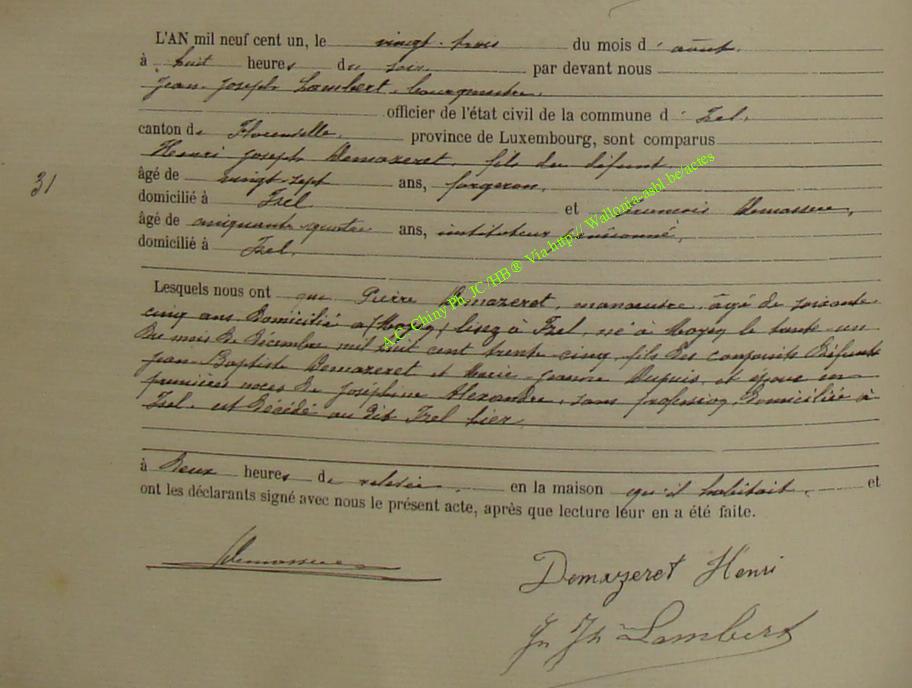 L'AN mil neuf cent un, le vingt-trois du mois d'août,
à huit heures du soir par devant nous
Jean-Joseph Lambert, bourgmestre,
officier de l'état civil de la commune d'Izel,
canton de Florenville, province de Luxembourg, sont comparus
Henri Joseph Demazeret, fils du défunt
âgé de vingt-sept ans, forgeron,
31
domicilié à Izel et
âgé de cinquante quatre ans, instituteur pensionné,
domicilié à Izel.
Lesquels nous ont que Pierre Demazeret, manoeuvre, âgé de soixante-
cinq ans, domicilié à (Moyen) lisez à Izel, né à Moyen le trente-un
du mois de décembre mil huit cent trente-cinq, fils des conjoints défunts
Jean-Baptiste Demazeret et Marie-Jeanne Dupuis, et époux en
premières noces de Joséphine Alexandre, sans profession, domiciliée à
Izel, est décédé au dit Izel hier
à deux heures de relevée, en la maison qu'il habitait, et
ont les déclarants signé avec nous le présent acte, après que lecture leur en a été faite.
Demazeret Henri
Jn Jh Lambert
A.C Chiny Ph JC/HB® Via http:// Wallonia-asbl.be/actes